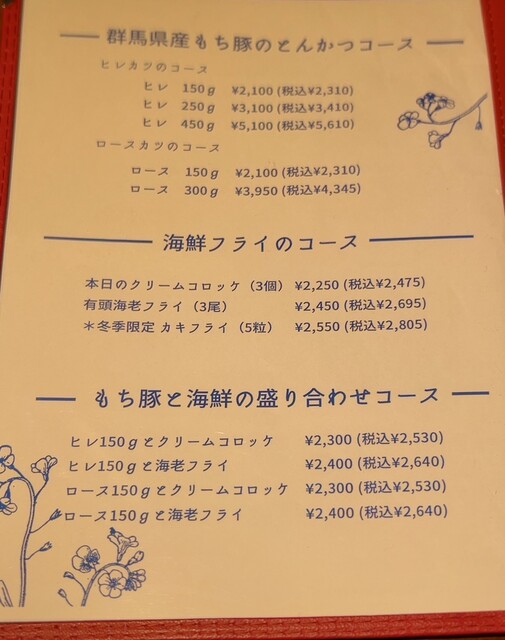 群馬県産もち豚のとんかつコース
ヒレカツのコース
ヒレ 150g ¥2,100 (税込¥2,310)
ヒレ 250g ¥3,100 (税込¥3,410)
ヒレ 450g ¥5,100 (税込¥5,610)
ロースカツのコース
ロース 150g ¥2,100 (税込¥2,310)
ロース 300g ¥3,950 (税込¥4,345)
海鮮フライのコース
本日のクリームコロッケ（3個）¥2,250 (税込¥2,475)
有頭海老フライ（3尾） ¥2,450 (税込¥2,695)
＊冬季限定 カキフライ（5粒） ¥2,550 (税込¥2,805)
もち豚と海鮮の盛り合わせコース
ヒレ150gとクリームコロッケ ¥2,300 (税込¥2,530)
ヒレ150gと海老フライ ¥2,400 (税込¥2,640)
ロース150gとクリームコロッケ ¥2,300 (税込¥2,530)
ロース150gと海老フライ ¥2,400 (税込¥2,640)